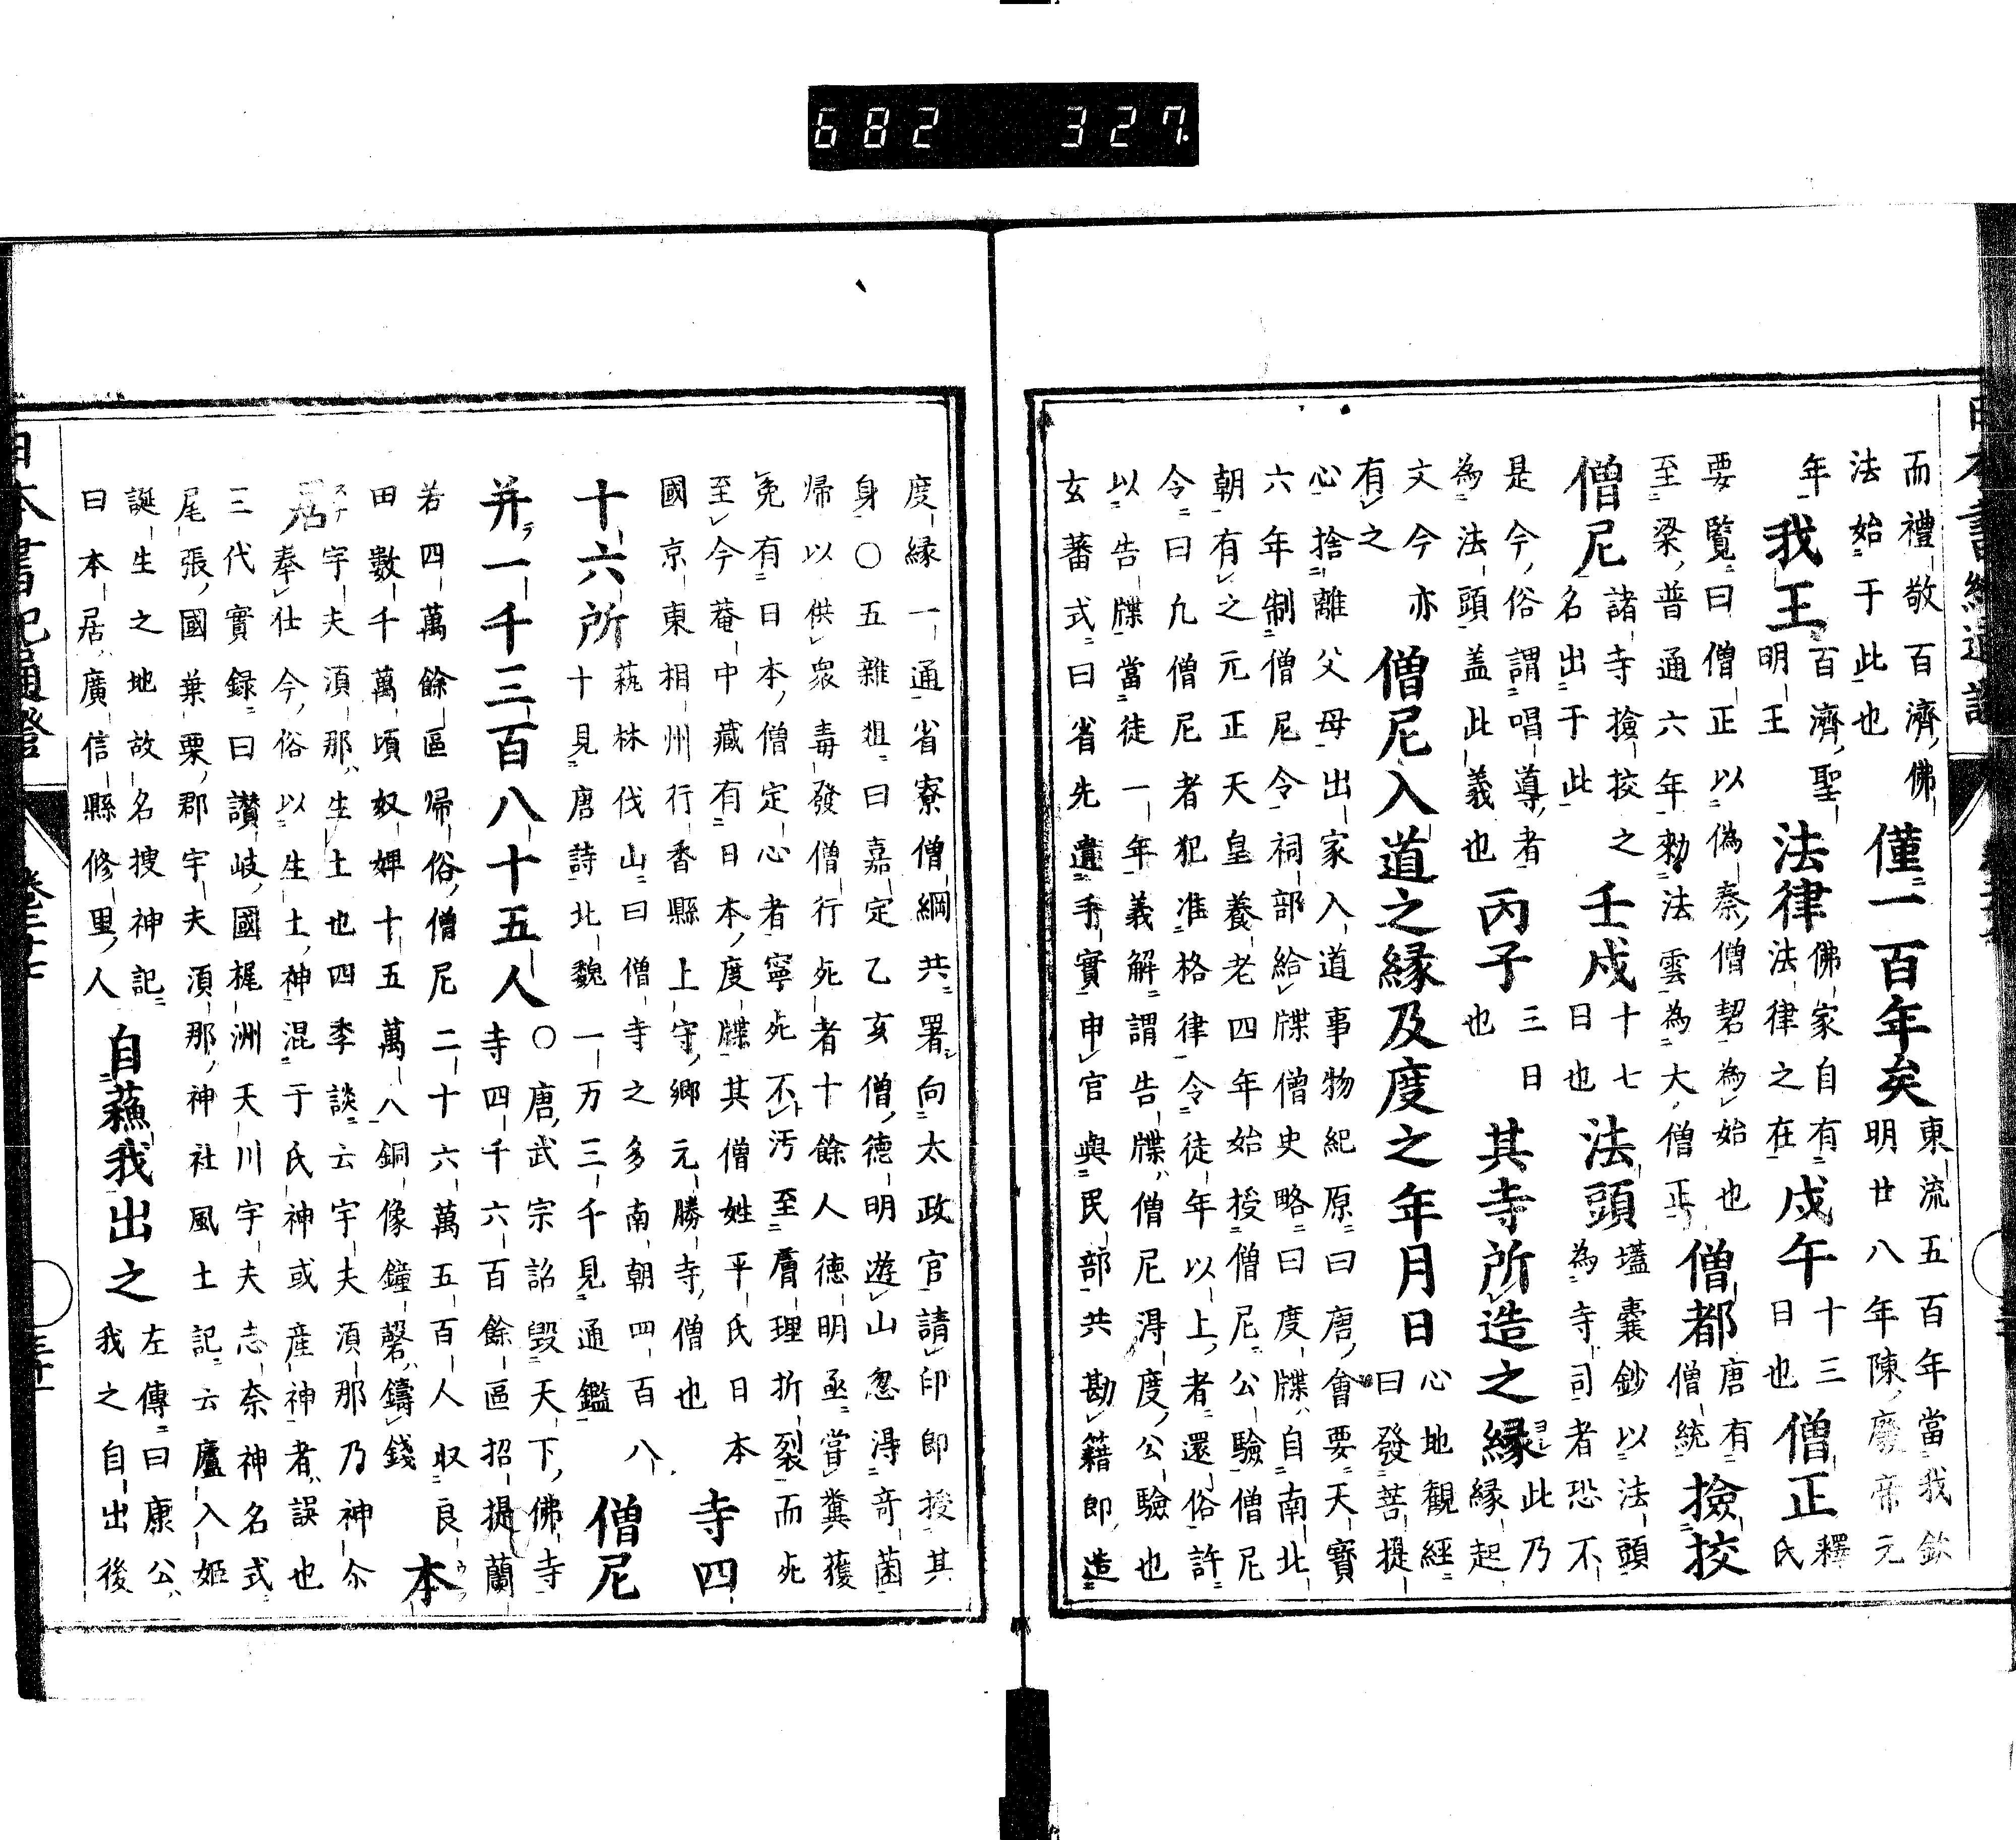 而禮敬百濟佛
法始于此也
僅一百年矣
東流五百年當我欽
明廿八年陳廢帝元
年
我王
百濟聖
明王
法律
佛家自有
法律之在
戍午
十三
日也
僧正
釋
氏
要覽曰僧正以偽秦僧䂮為始也
至梁普通六年勅法雲為大僧正
僧都
唐有
僧統
撿挍
僧尼
諸寺撿挍之
名出于此
壬戍
十七
日也
法頭
壒囊鈔以法頭
為寺司者恐不
是今俗謂唱導者
為法頭盖此義也
丙子
三日
也
其寺所造之縁
此乃
縁起
文今亦
有之
僧尼入道之縁及度之年月日
心地觀經
曰發菩提
心捨離父母出家入道事物紀原曰唐會要天寳
六年制僧尼令祠部給牒僧史略曰度牒自南北
朝有之元正天皇養老四年始授僧尼公驗僧尼
令曰凢僧尼者犯准格律令徒年以上者還俗許
以告牒當徒一年義解謂告牒僧尼淂度公驗也
玄蕃式曰省先遣手實申官與民部共勘籍即造
度縁一通省寮僧綱共署向太政官請印即授其
身〇五雜狙曰嘉定乙玄僧德明遊山忽淂奇菌
帰以供衆毒發僧行死者十餘人德明亟甞糞獲
免有日本僧定心者寧死不汚至膚理折裂而死
至今菴中藏有日本度牒其僧姓平氏日本
國京東相州行香縣上守鄉元勝寺僧也
寺四
十六所
蓺林伐山曰僧寺之多南朝四百八
十見唐詩北魏一万三千見通鑑
僧尼
并一千三百八十五人
〇唐武宗詔毀天下佛寺
寺四千六百餘區招提蘭
若四萬餘區帰俗僧尼二十六萬五百人収良
田數千萬頃奴婢十五萬八銅像鐘磬鑄錢
本
居
宇夫湏那生土也四季談云宇夫湏那乃神尒
奉仕今俗以生土神混于氏神或産神者誤也
三代實録曰讃岐國梶洲天川宇夫志奈神名式
尾張國葉栗郡宇夫湏那神社風土記云廬入姫
誕生之地故名捜神記
曰本居廣信縣修里人
自蘓我出之
左傳曰康公
我之自出後